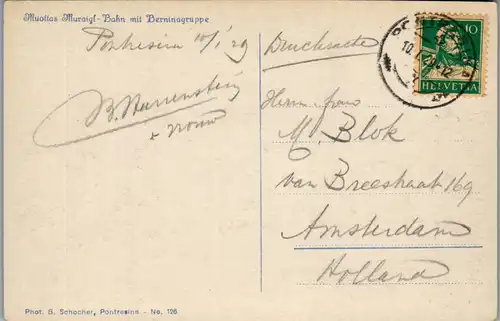 Muottas Muraigl-Bahn mit Berninagruppe
Pontresina 10/1 29
Drucksache
+ vrouw
Herrn Frau
M. Blok
van Breestraat 169
Amsterdam
Holland
10
HELVETIA
Phot. B. Schocher, Pontresina - No. 126